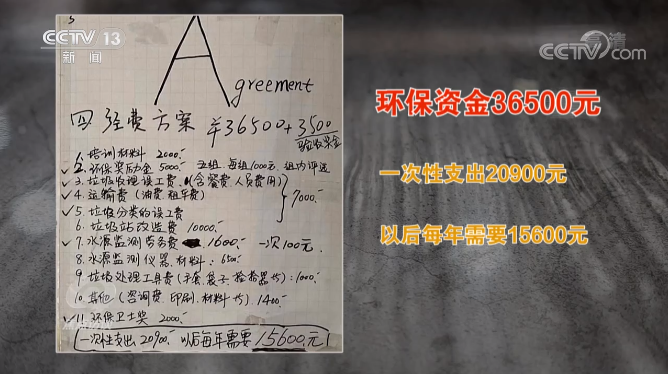 CCTV 13
新闻
CCTV.com
高清
Agreement
四 经费方案 ¥36500+3500
验收奖金
1. 培训材料 2000.
✓2. 环保奖励金 5000. 五组,每组1000元,组内评选
✓3. 垃圾收理误工费 (含餐费、人员费用)
✓4. 运输费(油费、租车费)
7000.
✓5. 垃圾分类的误工费
6. 垃圾站改造费 10000.
✓7. 水源监测劳务费 1600. 一次100元.
8. 水源监测仪器、材料: 6500
9. 垃圾处理工具费(手套、袋子、捡拾器等):1000.
10. 其他(咨询费、印刷、材料等). 1400.
✓11. 环保卫士奖 2000.
一次性支出20900. 以后每年需要15600.元
环保资金36500元
一次性支出20900元
以后每年需要15600元